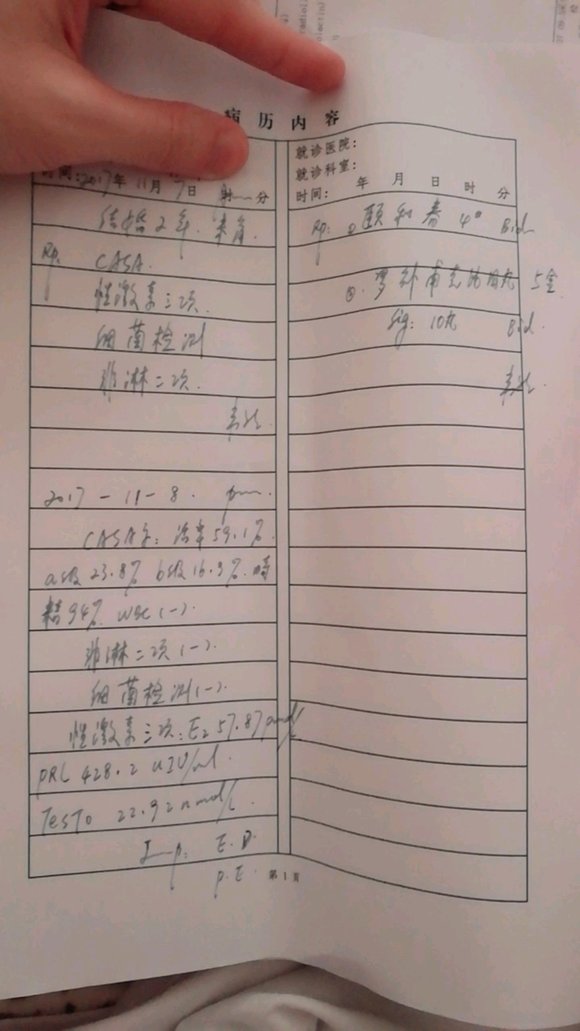 病历内容
时间:2017年11月7日 时 分
结婚2年,未育.
Rp. CASA.
性激素三项.
细菌检测
非淋二项.
2017-11-8. pm.
CASA示:活率59.1%
a级23.8% b级16.9%.畸
精94%. WBC(-).
非淋二项(-).
细菌检测(-).
性激素三项:E2 57.87 pmol/L
PRL 428.2 uIU/ml.
Testo 22.92 nmol/L.
Imp: E.D.
P.E.
第1页
就诊医院:
就诊科室:
时间: 年 月 日 时 分
Rp: ① 颐和春 4# Bid
②. 5盒
Sig: 10丸 Bid.